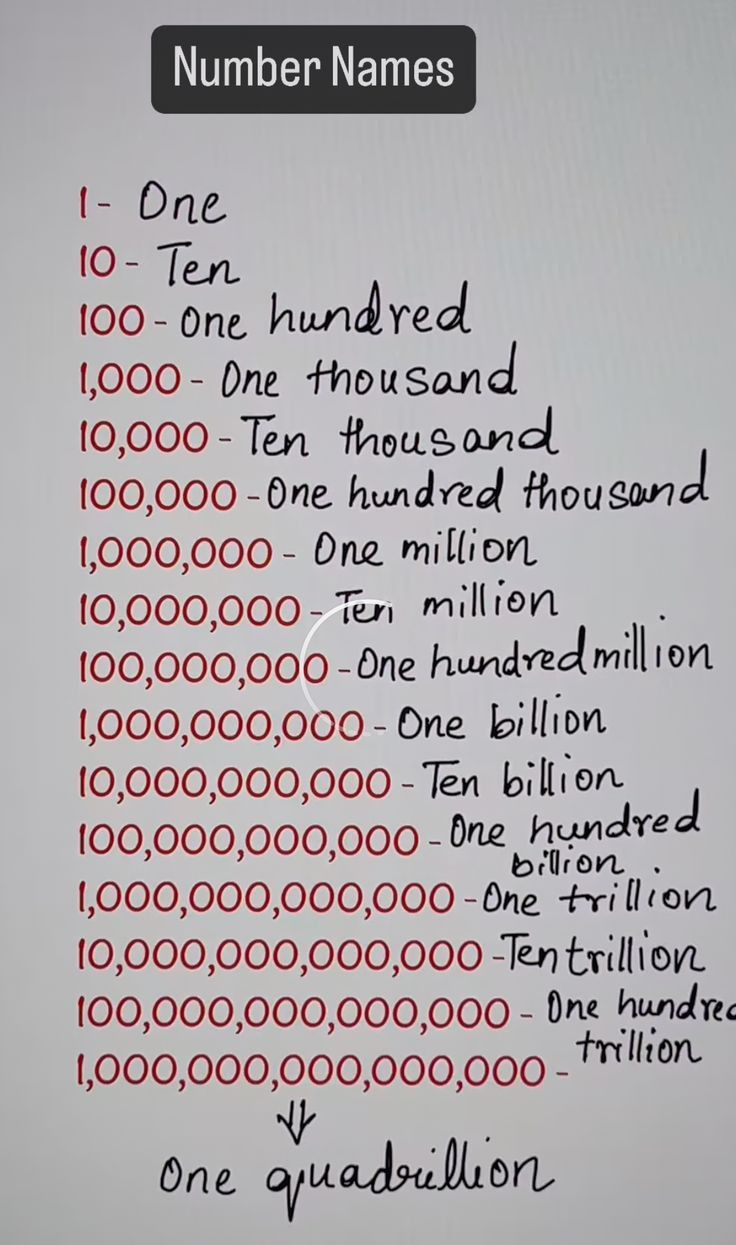 Number Names
1- One
10 - Ten
100 - One hundred
1,000 - One thousand
10,000 - Ten thousand
100,000 - One hundred thousand
1,000,000 - One million
10,000,000 - Ten million
100,000,000 - One hundred million
1,000,000,000 - One billion
10,000,000,000 - Ten billion
100,000,000,000 - One hundred
billion
1,000,000,000,000 - One trillion
10,000,000,000,000 - Ten trillion
100,000,000,000,000 - One hundred
trillion
1,000,000,000,000,000 -
One quadrillion